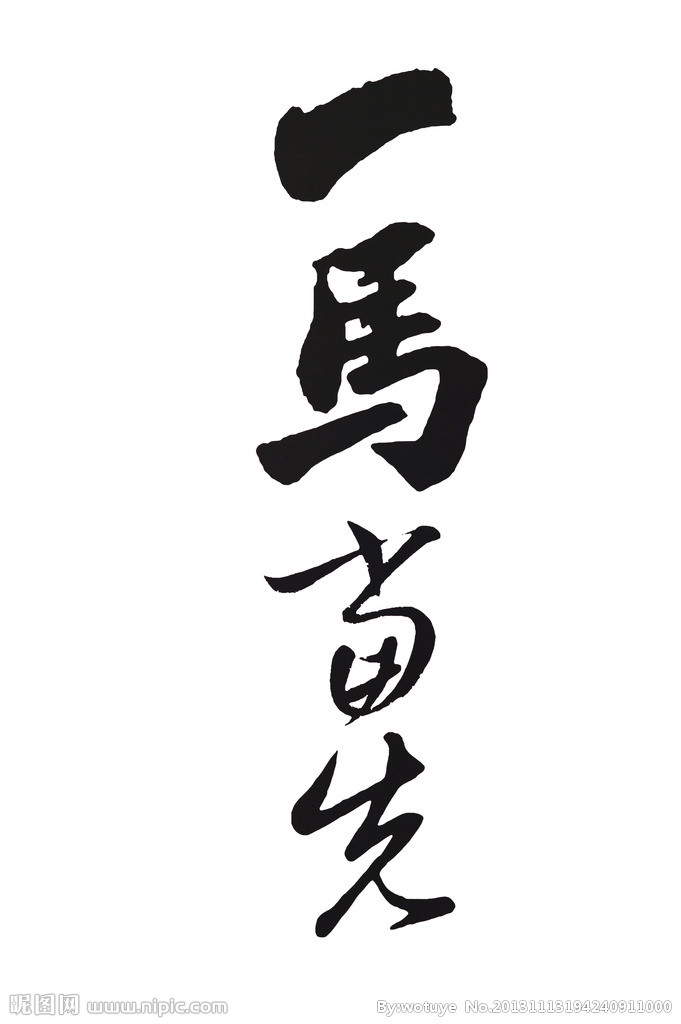 一馬當先
昵图网 www.nipic.com
By:wotuye No.20131113194240911000